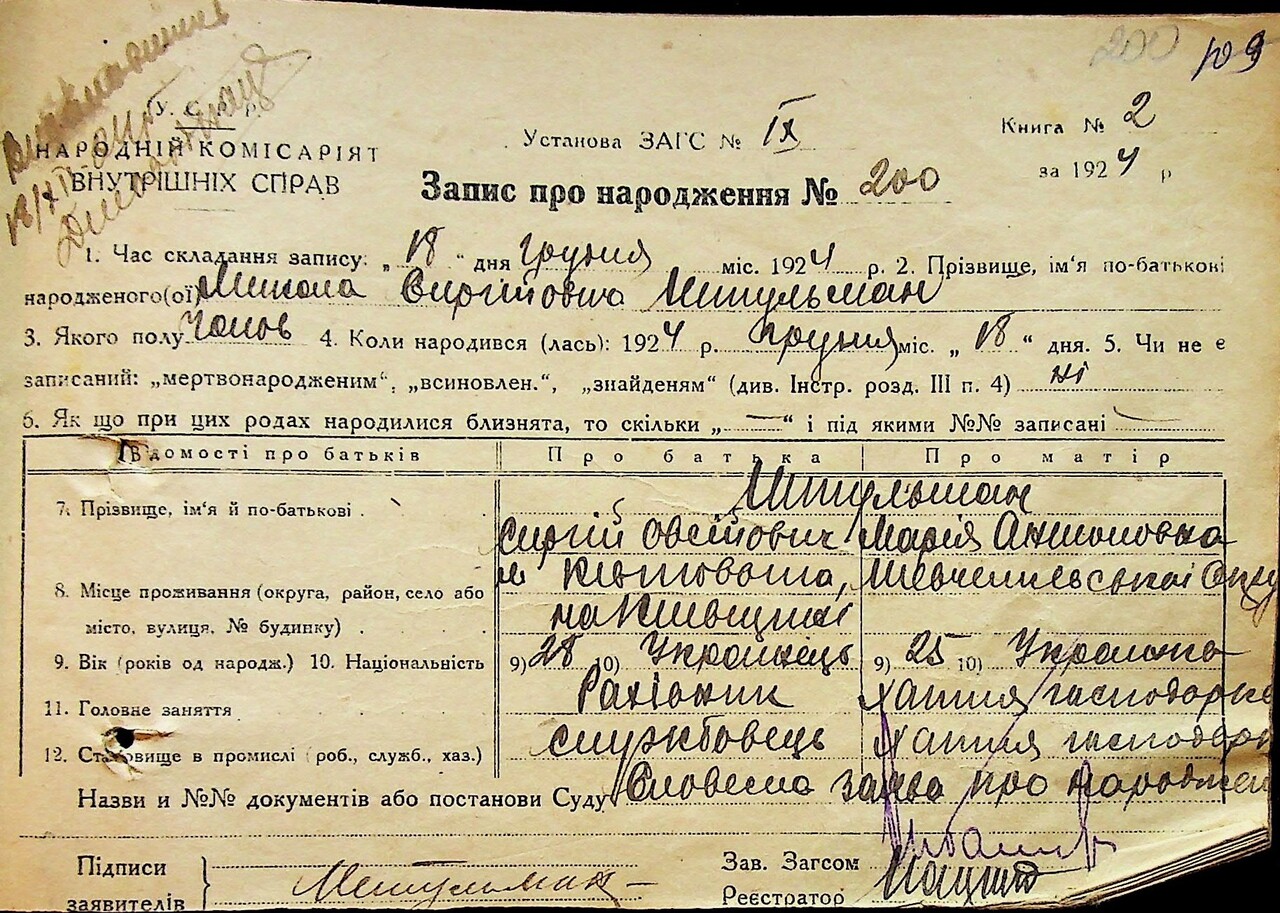 200 109
У. С. Р. Р.
НАРОДНІЙ КОМІСАРІЯТ
ВНУТРІШНІХ СПРАВ
Установа ЗАГС № IX
Книга № 2
за 1924 р
Запис про народження № 200
1. Час складання запису: „18“ дня Грудня міс. 1924 р. 2. Прізвище, ім'я по-батькові
народженого(ої) Микола Сиргійович Штульман
3. Якого полу Чолов 4. Коли народився (лась): 1924 р. Грудня міс. „18“ дня. 5. Чи не є
записаний: „мертвонародженим“, „всиновлен.“, „знайденям“ (див. Інстр. розд. III п. 4) ні
6. Як що при цих родах народилися близнята, то скільки „—“ і під якими №№ записані —
Відомості про батьків Про батька Про матір
Штульман
7. Прізвище, ім'я й по-батькові . Сиргій Овсійович Марія Антоновна
8. Місце проживання (округа, район, село або м Шевченківської Окр
місто, вулиця, № будинку) . . на Київщині
9. Вік (років од народж.) 10. Національність 9) 28 10) Українець 9) 25 10) Українка
11. Головне заняття Рахівник хатня господарка
12. Становище в промислі (роб., служб., хаз.) службовець хатня господарк
Назви и №№ документів або постанови Суду Словесна заява про народжен
Підписи
заявителів Штульман
Зав. Загсом
Реєстратор